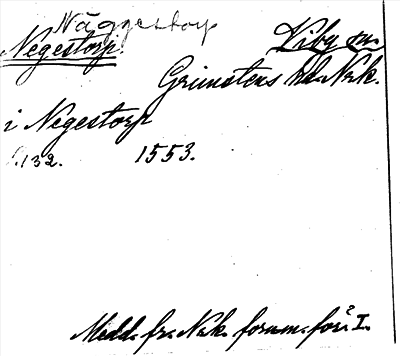 Näggestorp
Negestorp. Viby sn.
Grimstens hd. Närk.
i Negestorp
s.132. 1553.
Medd. fr. Närk. fornm. för. I.